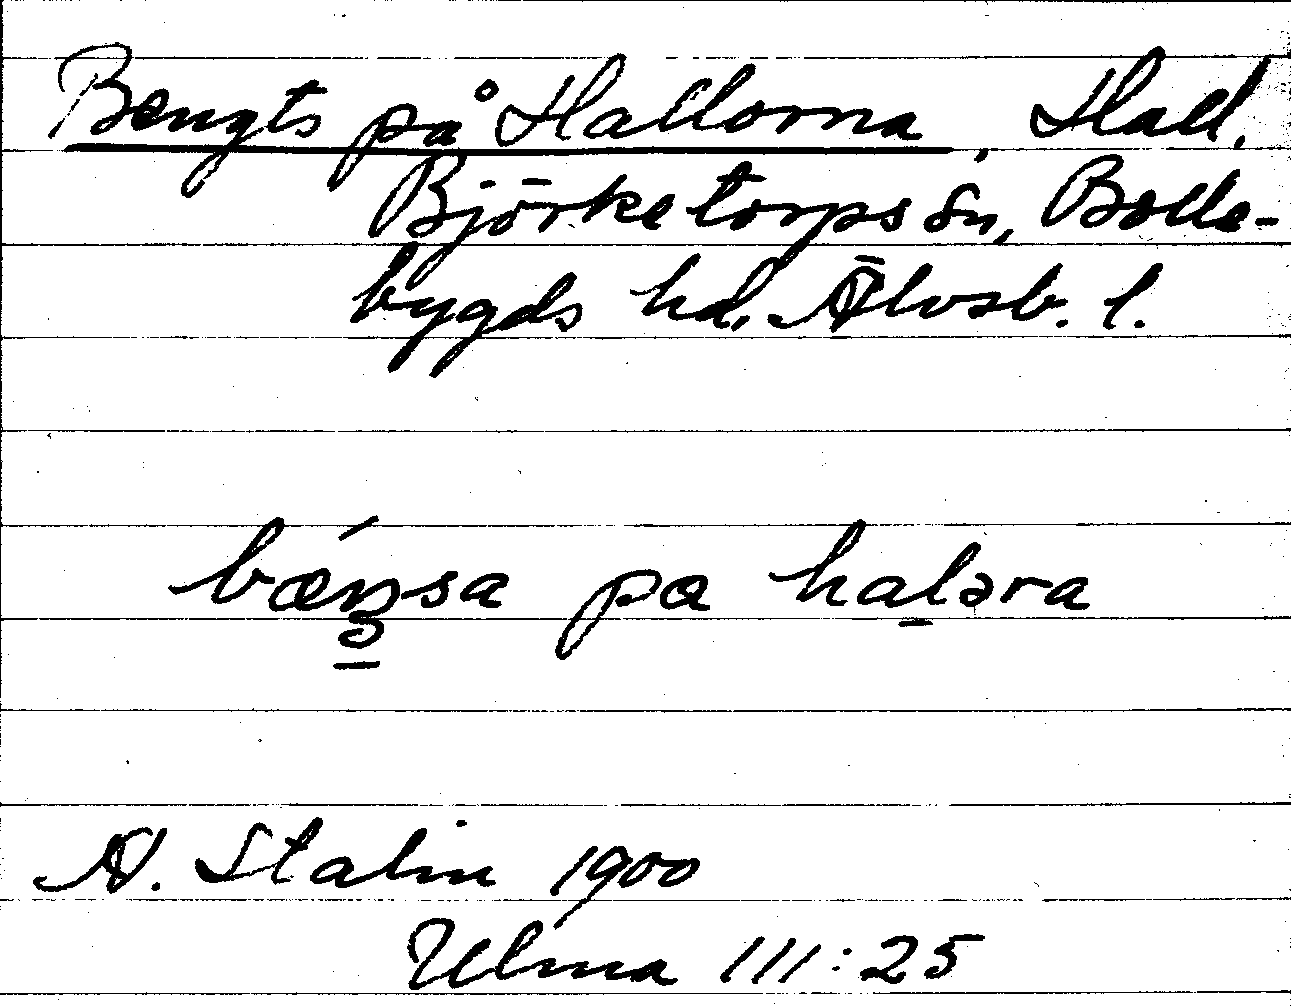 Bengts på Hallorna, Hall,
Björketorps sn, Bolle-
bygds hd. Älvsb. l.
bǽŋsa pa haḻəra
A. Stalin 1900
Ulma 111:25